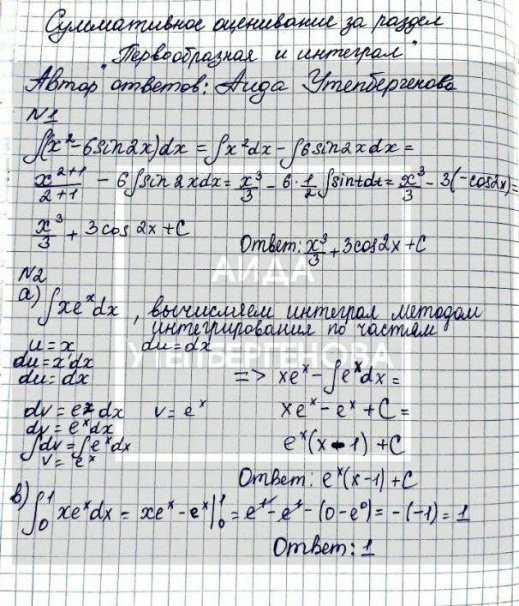 Суммативное оценивание за раздел
"Первообразная и интеграл"
Автор ответов: Аида Утепбергенова
N1
∫(x²-6sin2x)dx = ∫x²dx - ∫6sin2xdx =
x²⁺¹/2+1 - 6∫sin2xdx = x³/3 - 6·1/2∫sintdt = x³/3 - 3(-cos2x) =
x³/3 + 3cos2x+C
Ответ: x³/3 + 3cos2x+C
АИДА
N2
a) ∫xeˣdx, вычисляем интеграл методом
интегрирования по частям
u=x du=dx
УТЕПБЕРГЕНОВА
du=x'dx
du=dx
=> xeˣ - ∫eˣdx =
dv=eˣdx v=eˣ
xeˣ - eˣ + C =
dv=eˣdx
∫dv=∫eˣdx
eˣ(x-1)+C
v=eˣ
Ответ: eˣ(x-1)+C
b) ∫₀¹ xeˣdx = xeˣ - eˣ|₀¹ = e¹ - e¹ - (0-e⁰) = -(-1) = 1
Ответ: 1